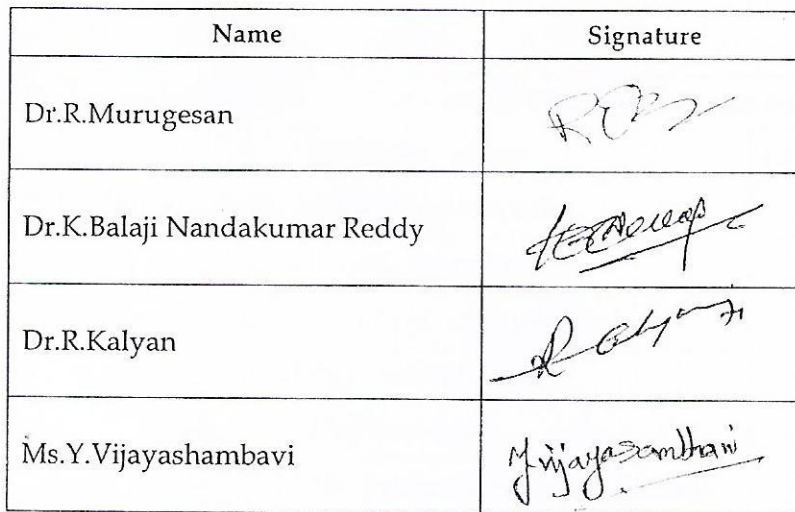 Name Signature
Dr.R.Murugesan
Dr.K.Balaji Nandakumar Reddy
Dr.R.Kalyan
Ms.Y.Vijayashambavi Y.Vijayasambavi